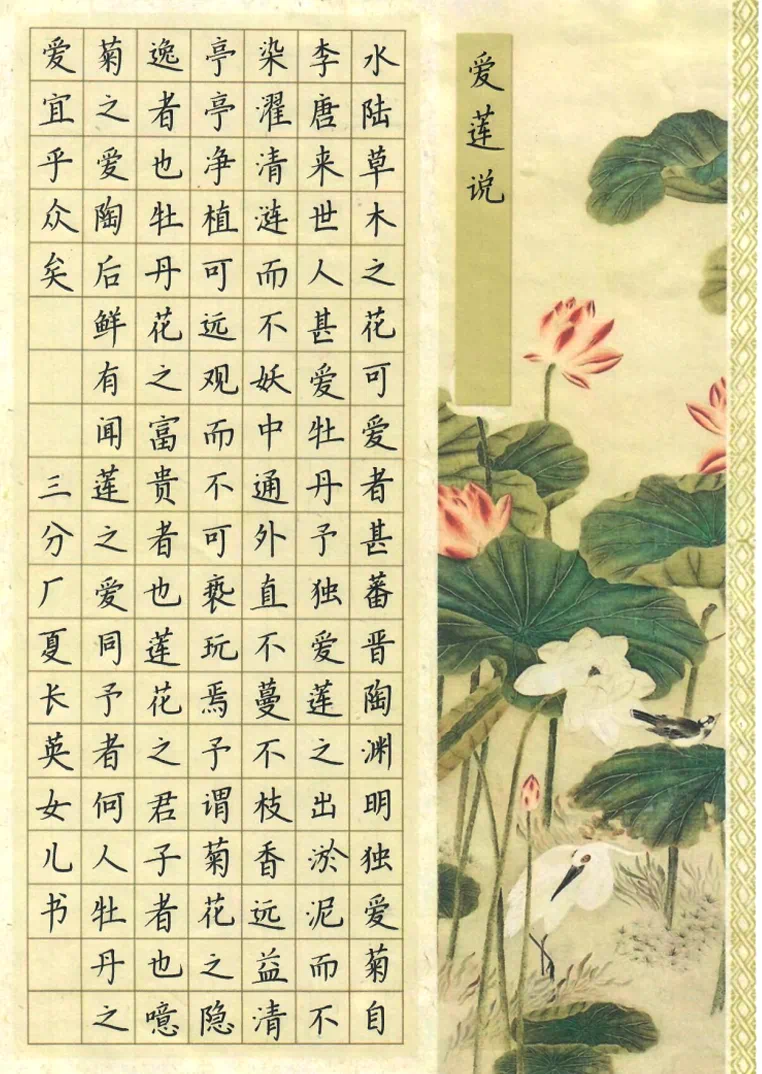 爱莲说
水陆草木之花可爱者甚蕃晋陶渊明独爱菊自
李唐来世人甚爱牡丹予独爱莲之出淤泥而不
染濯清涟而不妖中通外直不蔓不枝香远益清
亭亭净植可远观而不可亵玩焉予谓菊花之隐
逸者也牡丹花之富贵者也莲花之君子者也噫
菊之爱陶后鲜有闻莲之爱同予者何人牡丹之
爱宜乎众矣
三分厂夏长英女儿书